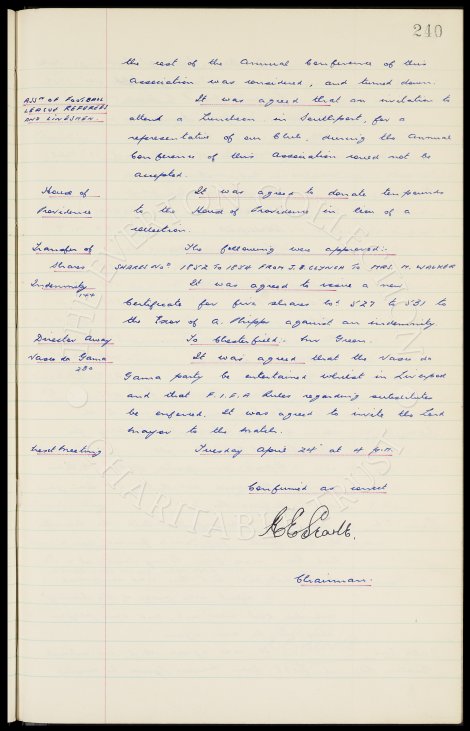 240
the cost of the Annual Conference of this
Association was considered, and turned down.
ASSN OF FOOTBALL
LEAGUE REFEREES
AND LINESMEN
It was agreed that an invitation to
attend a Luncheon in Southport, for a
representative of our Club, during the Annual
Conference of this Association could not be
accepted.
House of
Providence
It was agreed to donate ten pounds
to the House of Providence in lieu of a
collection.
Transfer of
Shares
The following was approved:-
SHARES Nos 1852 TO 1854 FROM J.B. TO MRS. M. WALKER
Indemnity
144
It was agreed to issue a new
Certificate for five shares Nos 527 to 531 to
the Exor of A. Phipps against an indemnity.
Director Away
To Chesterfield:- Mr Green.
Vasco da Gama
280
It was agreed that the Vasco da
Gama party be entertained whilst in Liverpool
and that F.I.F.A Rules regarding substitutes
be enforced. It was agreed to invite the Lord
Mayor to the Match.
Next Meeting
Tuesday April 24 at 4 p.m.
Confirmed as correct
Chairman.
EVERTON COLLECTION
CHARITABLE TRUST